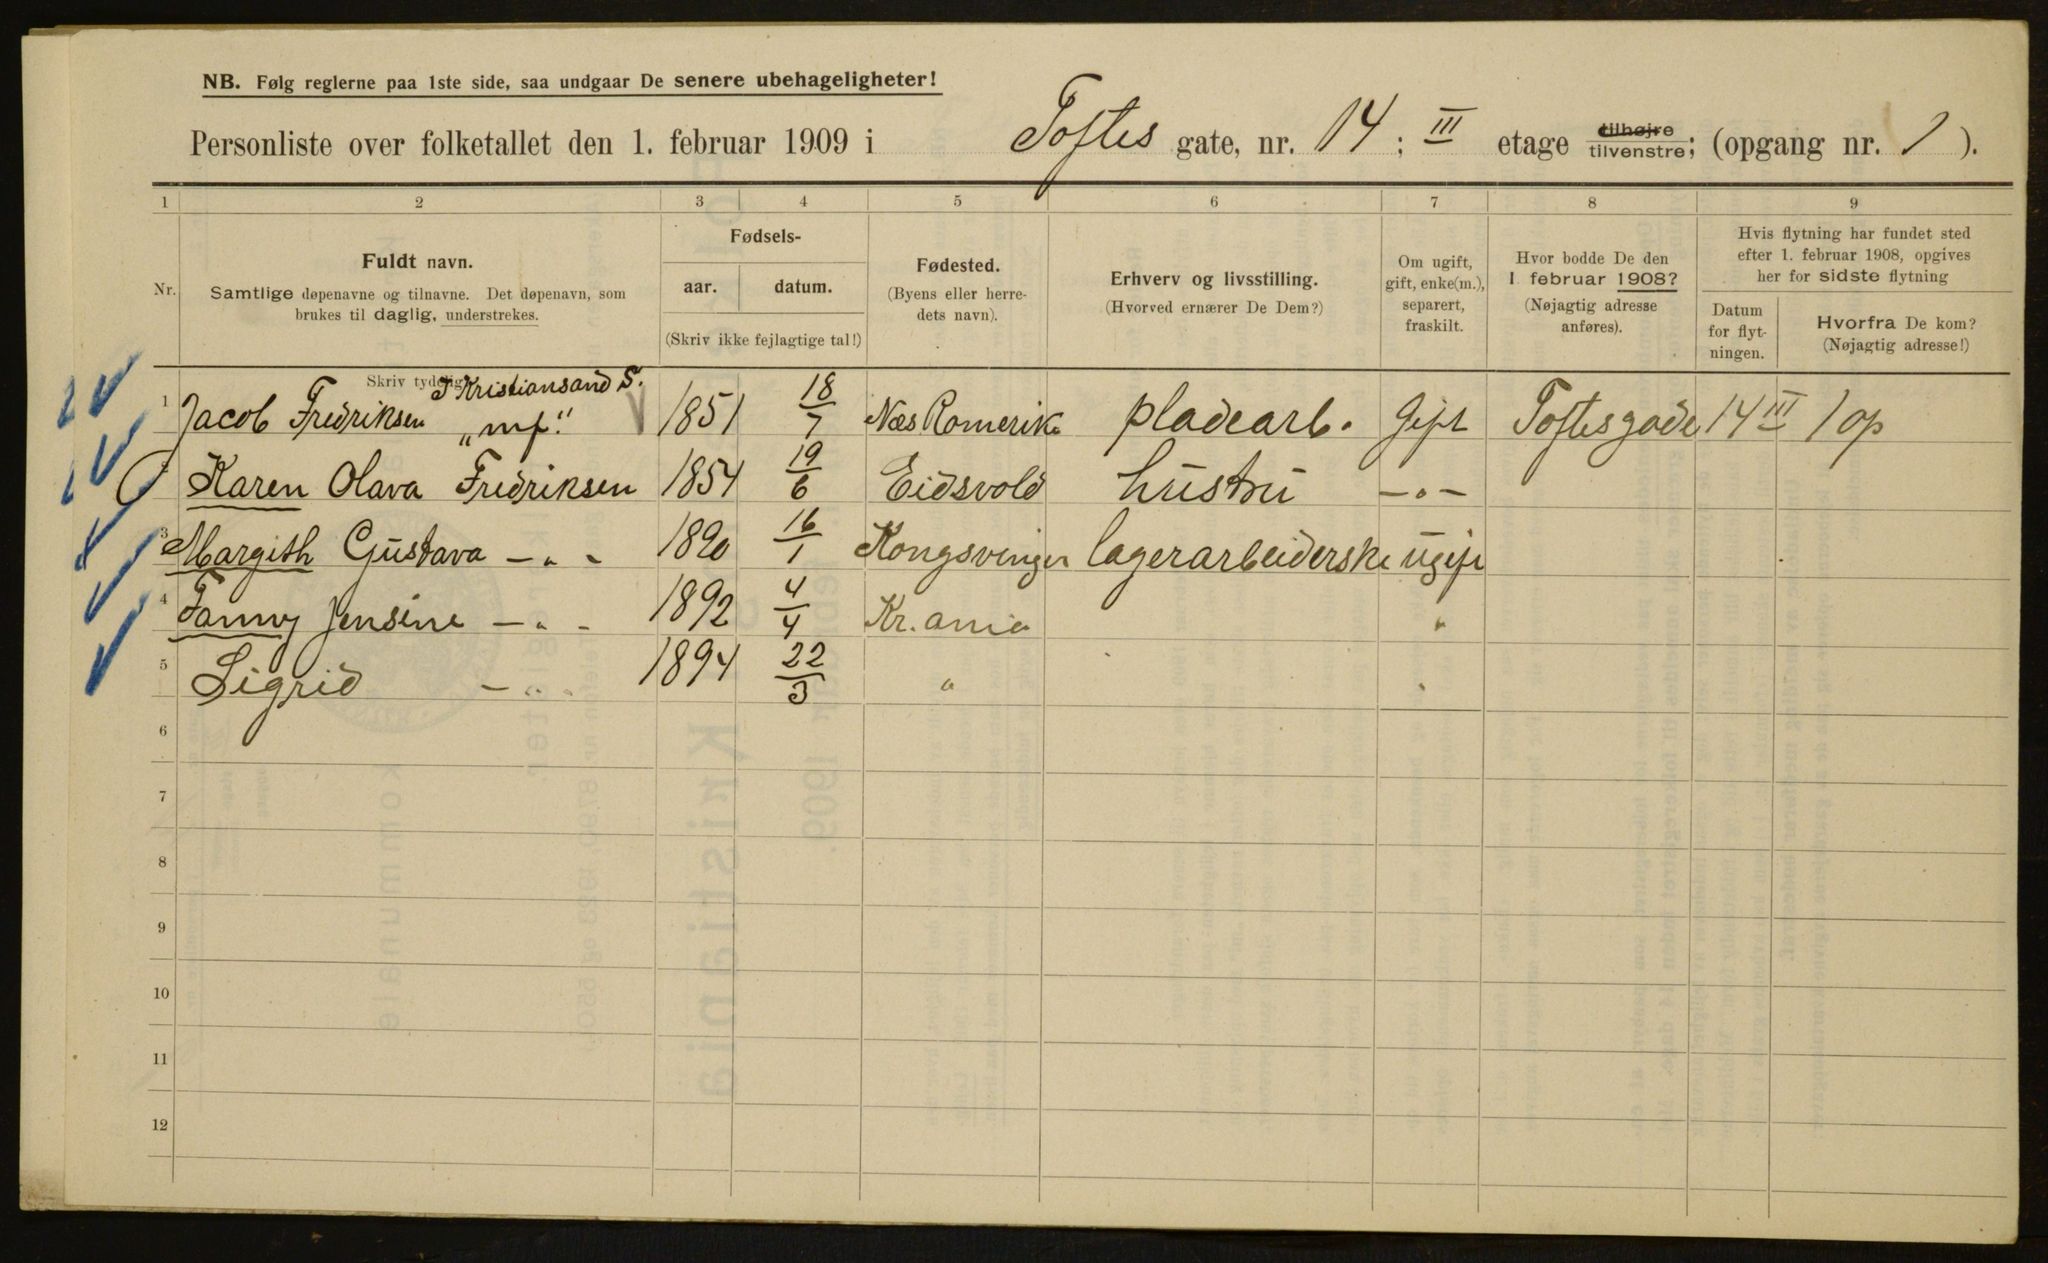 NB. Følg reglerne paa 1ste side, saa undgaar De senere ubehageligheter!
Personliste over folketallet den 1. februar 1909 i Toftes gate, nr. 14; III etage tilhøjre tilvenstre; (opgang nr. 1).
1 2 3 4 5 6 7 8 9
Nr.
Fuldt navn.
Samtlige døpenavne og tilnavne. Det døpenavn, som
brukes til daglig, understrekes.
Skriv tydelig
Fødsels-
aar. datum.
(Skriv ikke fejlagtige tal!)
Fødested.
(Byens eller herre-
dets navn).
Erhverv og livsstilling.
(Hvorved ernærer De Dem?)
Om ugift,
gift, enke(m.),
separert,
fraskilt.
Hvor bodde De den
1 februar 1908?
(Nøjagtig adresse
anføres).
Hvis flytning har fundet sted
efter 1. februar 1908, opgives
her for sidste flytning
Datum
for flyt-
ningen.
Hvorfra De kom?
(Nøjagtig adresse!)
I Kristiansand S.
1 Jacob Fredriksen "mf." 1851 18/7 Næs Romerike pladearb. Gift Toftesgade 14 III 1 op
Karen Olava Fredriksen 1854 19/6 Eidsvold hustru -"-
3 Margith Gustava -"- 1890 16/1 Kongsvinger lagerarbeiderske ugift
4 Fanny Jensine -"- 1892 4/4 Kr.ania "
5 Sigrid -"- 1894 22/3 " "
6
7
8
9
10
11
12